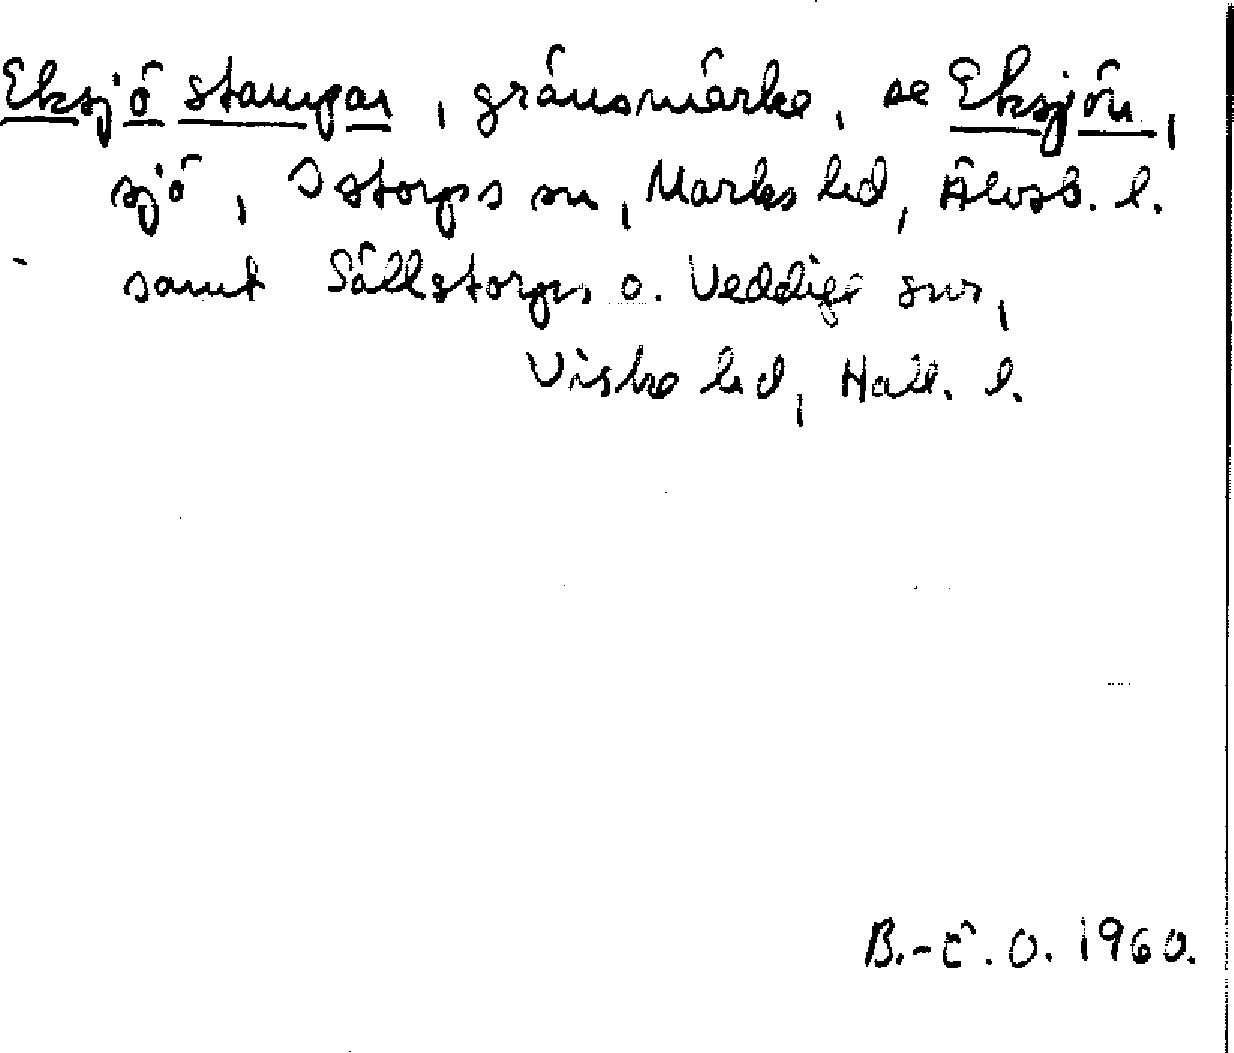 Eksjö stampar, gränsmärke, se Eksjön,
sjö, Istorps sn, Marks hd, Älvsb. l.
samt Sällstorps o. Veddige snr,
Viske hd, Hall. l.
B.-E. O. 1960.